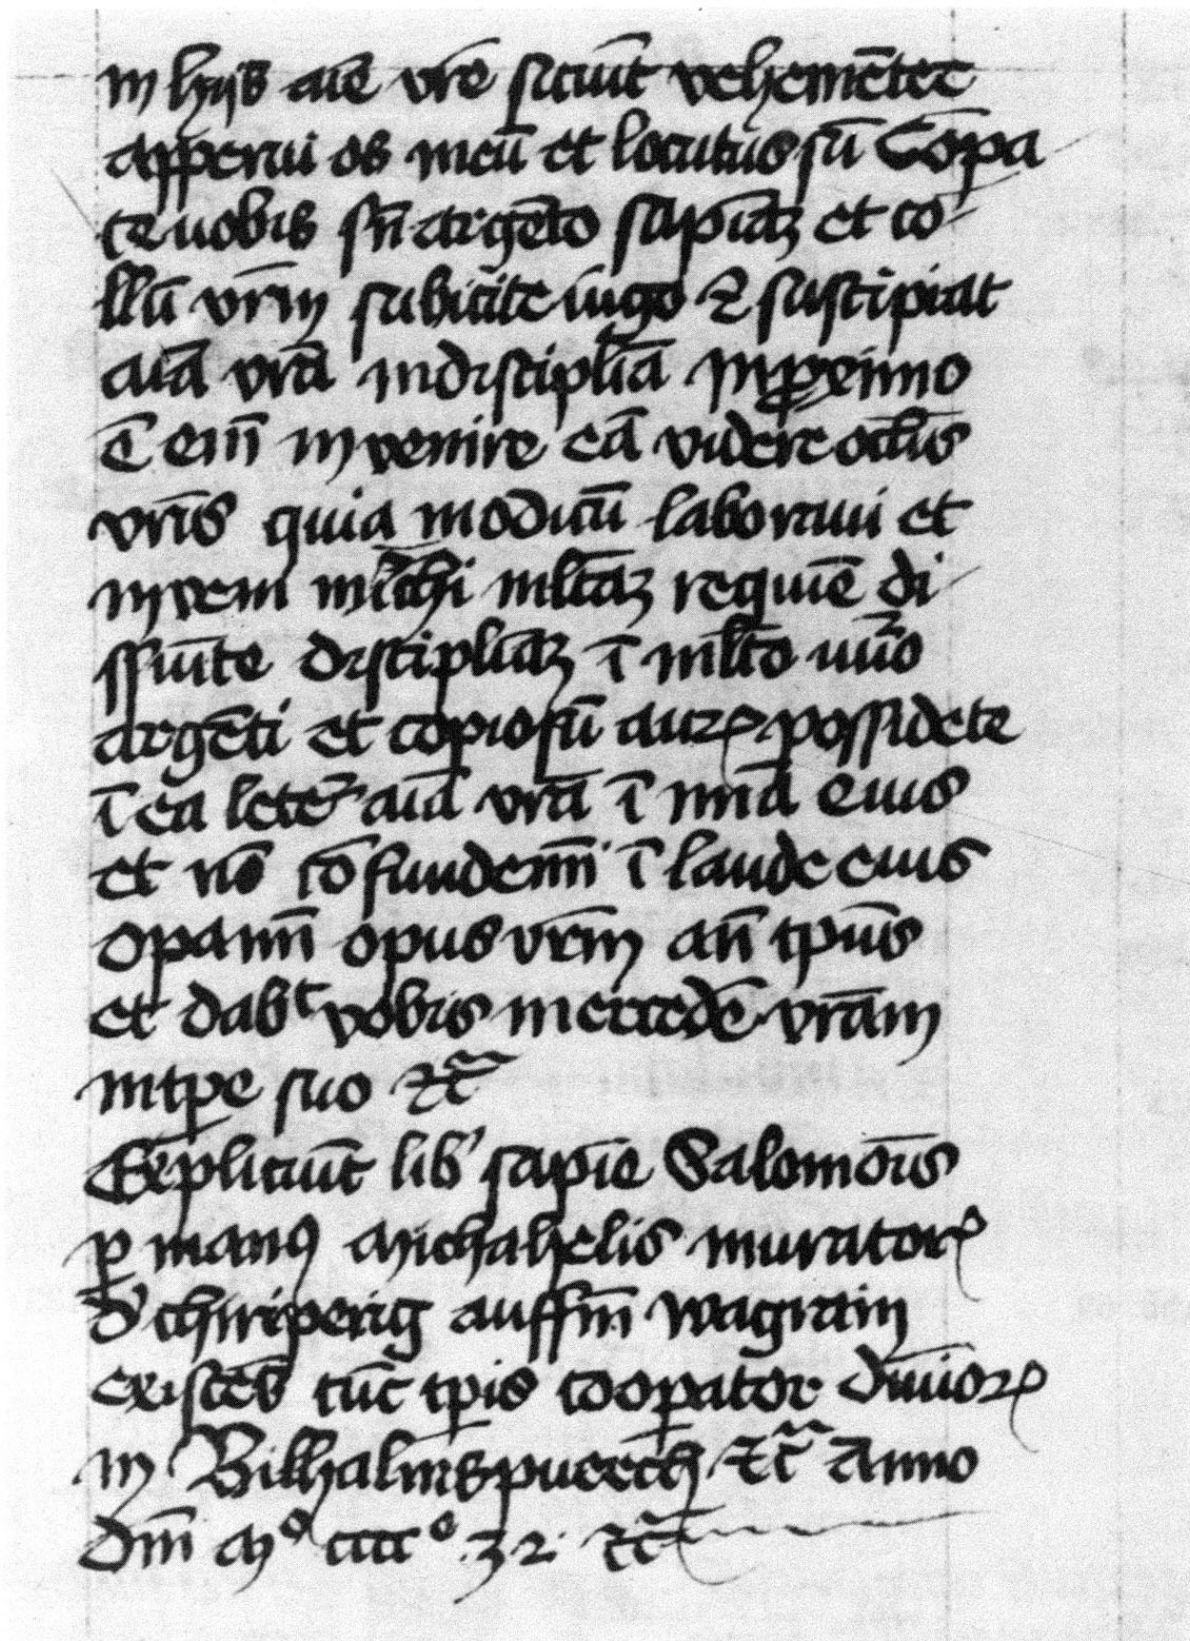 in hijs aīe vr̄e siciūt vehemēter
apperui os meū et locutus sū Cōpa
te uobis sn̄ argēto sapiāꝫ et co
llū vr̄m subicite iugo ⁊ suscipiat
aiā vrā indisciplīa inproximo
ē em̄ invenire eā videre oculis
vr̄is quia modicū laboraui et
inveni michi ml̄tāꝫ requiē di
ssiute disciplināꝫ ī ml̄to nūo
argēti et copiosū aurꝫ possidete
ī ea letet᷑ aiā vrā ī mīa eius
et nō cōfundemī ī laude eius
opamī opus vr̄m an̄ tpūs
et dabᵗ vobis mercedē vrām
intpe suo ⁊c̄
Expliciūt lib' sapīe Salomōis
ꝑ manꝰ Michahelis muratorꝭ
d' chirperig auffm̄ wagrain
existēs tūc tꝑis cooꝑator diuīorꝝ
in Bilhalmspuerch ⁊c̄ Anno
Dm̄ Mᵒ ccccᵒ 32 ⁊c̄